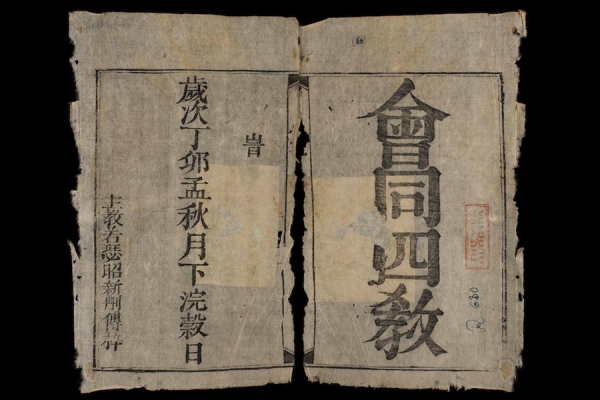 會同四教
旹
歲次丁卯孟秋月下浣穀日
主教若瑟昭新傳梓
R.680